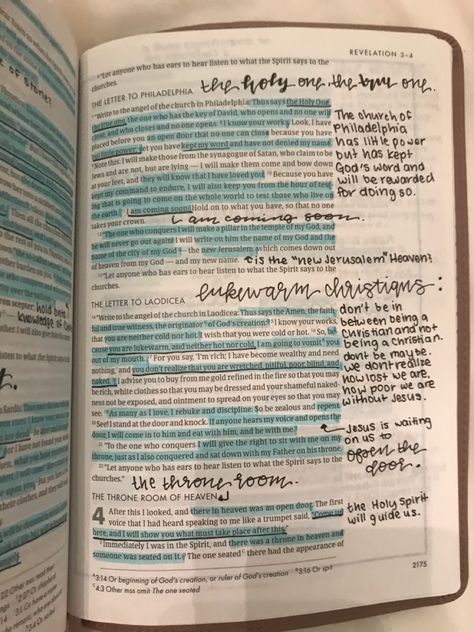 REVELATION 3–4
"Let anyone who has ears to hear listen to what the Spirit says to the
churches.
THE LETTER TO PHILADELPHIA the holy one. the true one.
"Write to the angel of the church in Philadelphia: Thus says the Holy One,
the true one, the one who has the key of David, who opens and no one will
close, and who closes and no one opens: "I know your works. Look, I have
placed before you an open door that no one can close because you have
little power; yet you have kept my word and have not denied my name.
Note this: I will make those from the synagogue of Satan, who claim to be
Jews and are not, but are lying — I will make them come and bow down
at your feet, and they will know that I have loved you. Because you have
kept my command to endure, I will also keep you from the hour of test-
ing that is going to come on the whole world to test those who live on
the earth. I am coming soon. Hold on to what you have, so that no one
takes your crown. I am coming soon.
The church of
Philadelphia
has little power
but has kept
God's word and
will be rewarded
for doing so.
"The one who conquers I will make a pillar in the temple of my God, and
he will never go out again. I will write on him the name of my God and the
name of the city of my God — the new Jerusalem, which comes down out
of heaven from my God — and my new name. is the "new Jerusalem" Heaven?
"Let anyone who has ears to hear listen to what the Spirit says to the
churches.
THE LETTER TO LAODICEA lukewarm christians:
"Write to the angel of the church in Laodicea: Thus says the Amen, the faith-
ful and true witness, the originator of God's creation: I know your works,
that you are neither cold nor hot. I wish that you were cold or hot. So, be-
cause you are lukewarm, and neither hot nor cold, I am going to vomit you
out of my mouth. For you say, 'I'm rich; I have become wealthy and need
nothing,' and you don't realize that you are wretched, pitiful, poor, blind, and
naked. I advise you to buy from me gold refined in the fire so that you may
be rich, white clothes so that you may be dressed and your shameful naked-
ness not be exposed, and ointment to spread on your eyes so that you may
see. As many as I love, I rebuke and discipline. So be zealous and repent.
See! I stand at the door and knock. If anyone hears my voice and opens the
door, I will come in to him and eat with him, and he with me.
don't be in
between being a
Christian and not
being a christian.
dont be maybe.
we dont realize
how lost we are.
how poor we are
without Jesus.
Jesus is waiting
on us to
open the
door.
"To the one who conquers I will give the right to sit with me on my
throne, just as I also conquered and sat down with my Father on his throne.
"Let anyone who has ears to hear listen to what the Spirit says to the
churches." the throne room.
THE THRONE ROOM OF HEAVEN
4 After this I looked, and there in heaven was an open door. The first
voice that I had heard speaking to me like a trumpet said, "Come up
here, and I will show you what must take place after this."
Immediately I was in the Spirit, and there was a throne in heaven and
someone was seated on it. The one seated there had the appearance of
the Holy Spirit
will guide us.
3:14 Or beginning of God's creation, or ruler of God's creation 3:16 Or spit
4:3 Other mss omit The one seated
2175